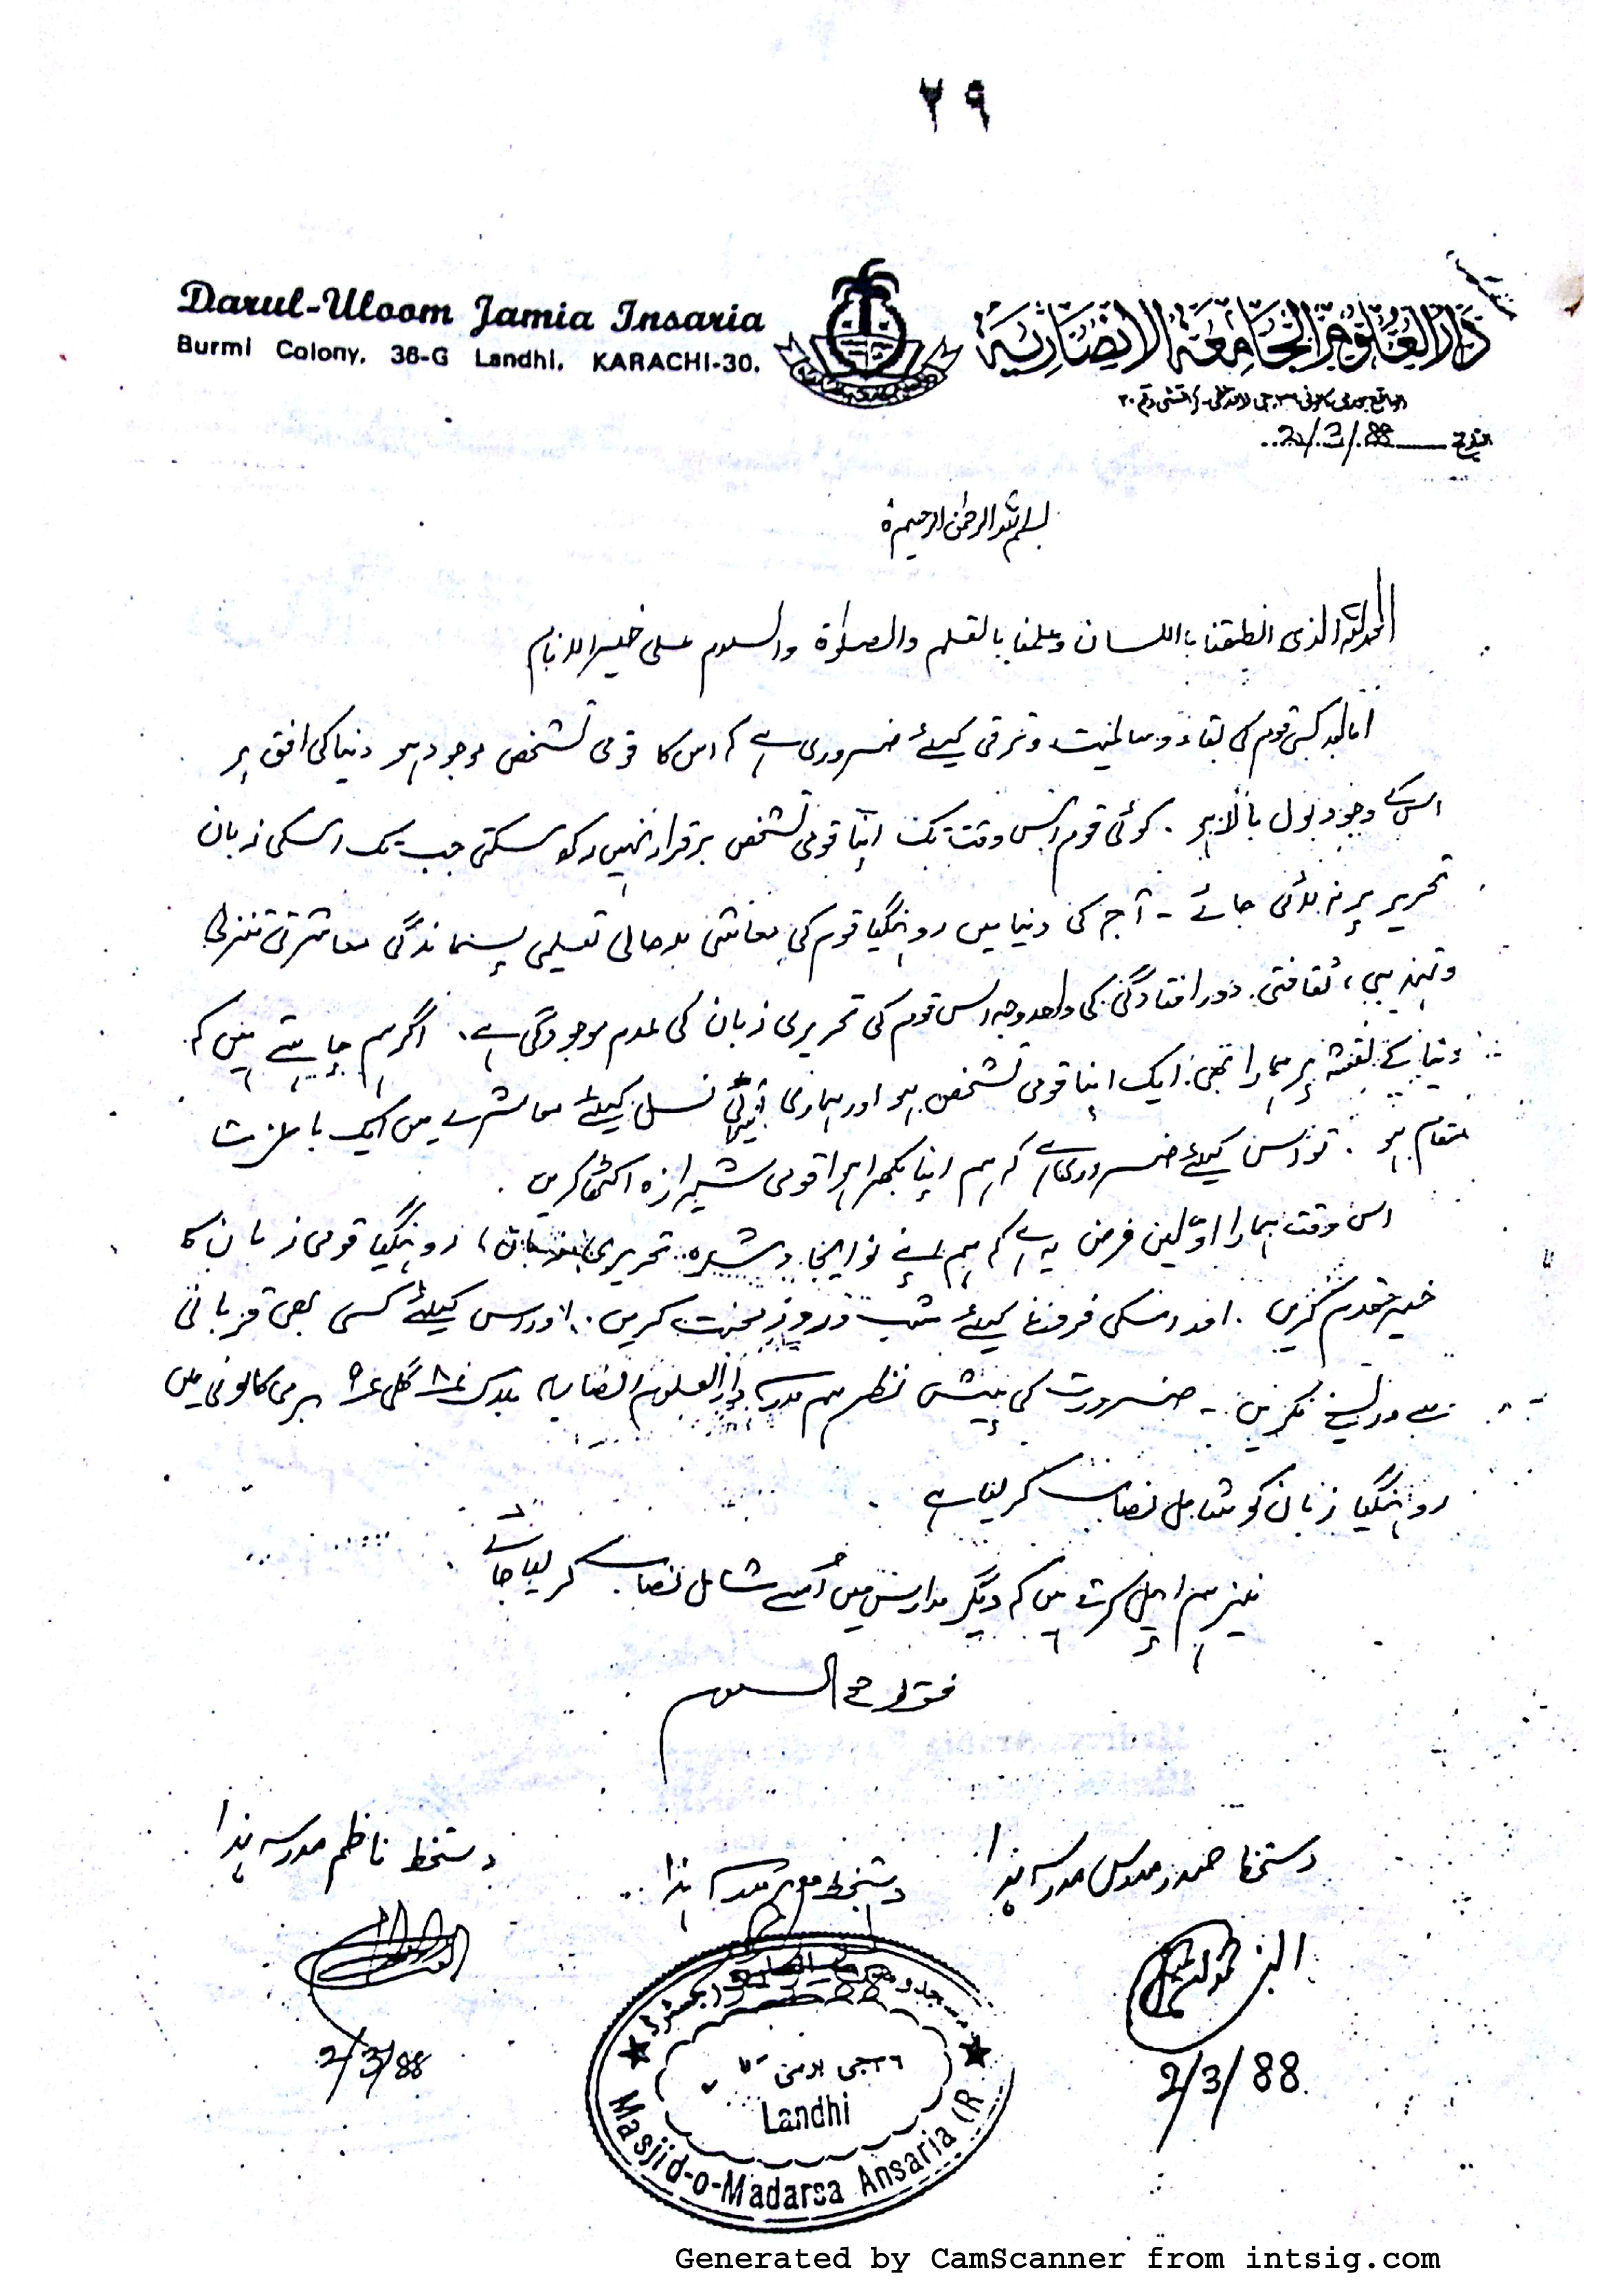 ٢٩
Darul-Uloom Jamia Insaria
Burmi Colony, 36-G Landhi, KARACHI-30.
دار العلوم الجامعة الانصارية
التاريخ 2/3/88
بسم اللہ الرحمٰن الرحیم
الحمد للہ الذی انطقنا باللسان وعلمنا بالقلم والصلوٰۃ والسلام علی خیر الانام
اما بعد کسی قوم کی بقاء و سالمیت و ترقی کیلئے ضروری ہے کہ اس کا قومی تشخص موجود ہو دنیا کی افق پر
اس کے وجود بول بالا ہو۔ کوئی قوم اس وقت تک اپنا قومی تشخص برقرار نہیں رکھ سکتی جب تک اسکی زبان
تحریر پر نہ لائی جائے ۔ آج کی دنیا میں روہنگیا قوم کی معاشی بدحالی تعلیمی پسماندگی معاشرتی تنزلی
و تہذیبی، ثقافتی دور افتادگی کی واحد وجہ اس قوم کی تحریری زبان کی عدم موجودگی ہے۔ اگر ہم چاہتے ہیں کہ
دنیا کے نقشہ پر ہمارا بھی ایک اپنا قومی تشخص ہو اور ہماری نسل کیلئے معاشرے میں ایک با عزت
مقام ہو۔ تو اس کیلئے ضروری ہے کہ ہم اپنا بکھرا ہوا قومی شیرازہ اکٹھا کریں۔
اس وقت ہمارا اوّلین فرض یہ ہے کہ ہم اپنے نو ایجاد شدہ تحریری زبان، روہنگیا قومی زبان کا
خیر مقدم کریں۔ اور اسکی فروغ کیلئے شب و روز محنت کریں۔ اور اس کیلئے کسی بھی قربانی
سے دریغ نکریں ۔ ضرورت کی پیش نظر ہم مدرسہ دار العلوم انصاریہ بلاک ۸ گلی ۹ برمی کالونی میں
روہنگیا زبان کو شامل نصاب کر لیا ہے
نیز ہم اپیل کرتے ہیں کہ دیگر مدارس میں اُسے شامل نصاب کر لیا جائے
فقط مع السلام
دستخط صدر مدرس مدرسہ ہذا
دستخط مدرسہ ہذا
دستخط ناظم مدرسہ ہذا
2/3/88
2/3/88
٣٦ جی برمی
Landhi
Masjid-o-Madarsa Ansaria (R
Generated by CamScanner from intsig.com